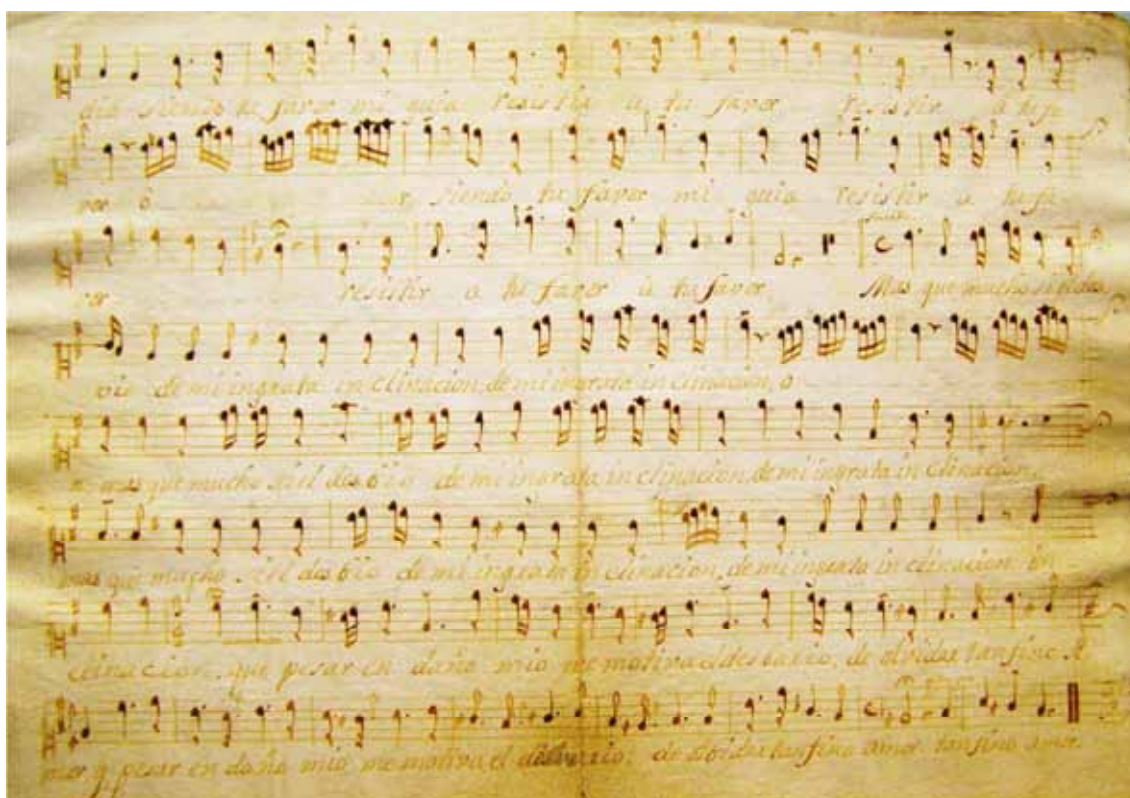 siendo tu favor mi guia resistir a tu favor resistir a tu fa
vor o siendo tu favor mi guia resistir a tu fa
vor resistir a tu favor a tu favor Mas que mucho si el des
vio de mi ingrata in clinacion, de mi ingrata in clinacion, o
mas que mucho si el desbio de mi ingrata in clinacion, de mi ingrata in clinacion,
mas que mucho si el desbio de mi ingrata in clinacion, de mi ingrata in clinacion in
clinacion, que pesar en daño mio me motiva el desbario, de olvidar tan fino A
mor q pesar en daño mio me motiva el desbario, de olvidar tan fino amor tan fino amor